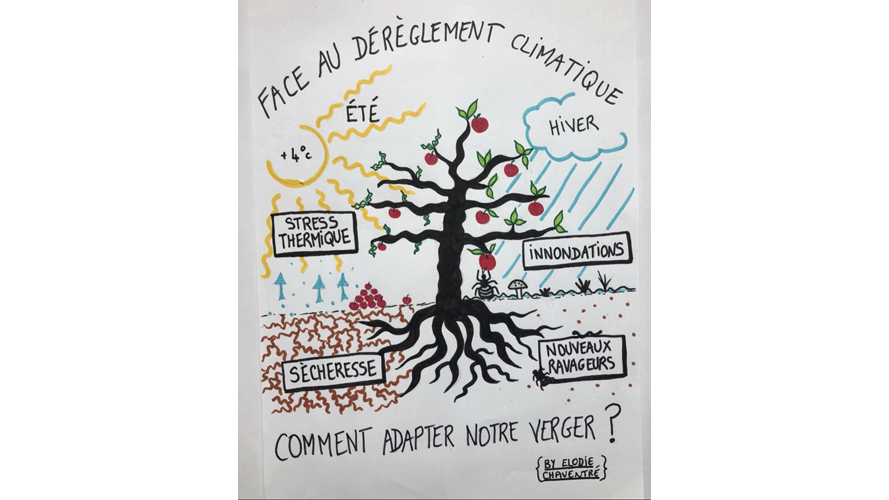 FACE AU DÉRÈGLEMENT CLIMATIQUE
ÉTÉ
+4°c
HIVER
STRESS
THERMIQUE
INNONDATIONS
SÈCHERESSE
NOUVEAUX
RAVAGEURS
COMMENT ADAPTER NOTRE VERGER ?
{BY ELODIE
CHAVENTRÉ}